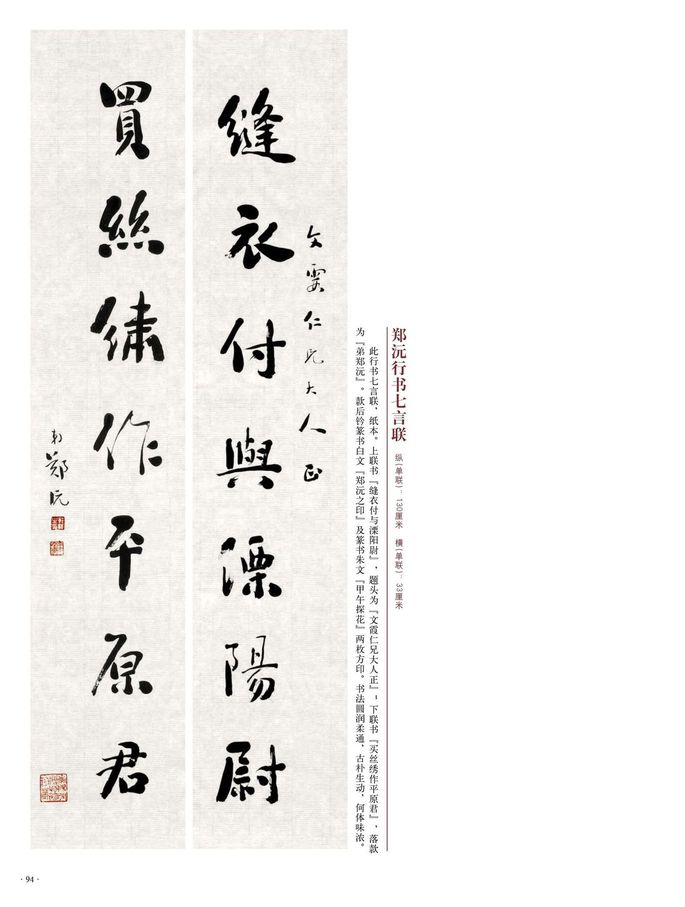 郑沅行书七言联
纵(单联)：130厘米　横(单联)：33厘米
此行书七言联，纸本。上联书『缝衣付与溧阳尉』，题头为『文霞仁兄大人正』；下联书『买丝绣作平原君』，落款
为『弟郑沅』。款后钤篆书白文『郑沅之印』及篆书朱文『甲午探花』两枚方印。书法圆润柔通，古朴生动，何体味浓。
文霞仁兄大人正
縫衣付與溧陽尉
買絲繡作平原君
弟鄭沅
·94·